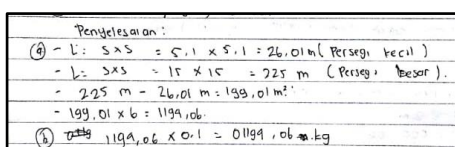 Penyelesaian :
(a) - L: s x s = 5,1 x 5,1 = 26,01 m (Persegi kecil)
- L: s x s = 15 x 15 = 225 m (Persegi besar).
- 225 m - 26,01 m = 199,01 m²
- 199,01 x 6 = 1199,06.
(b) 1199,06 x 0,1 = 01199,06 kg